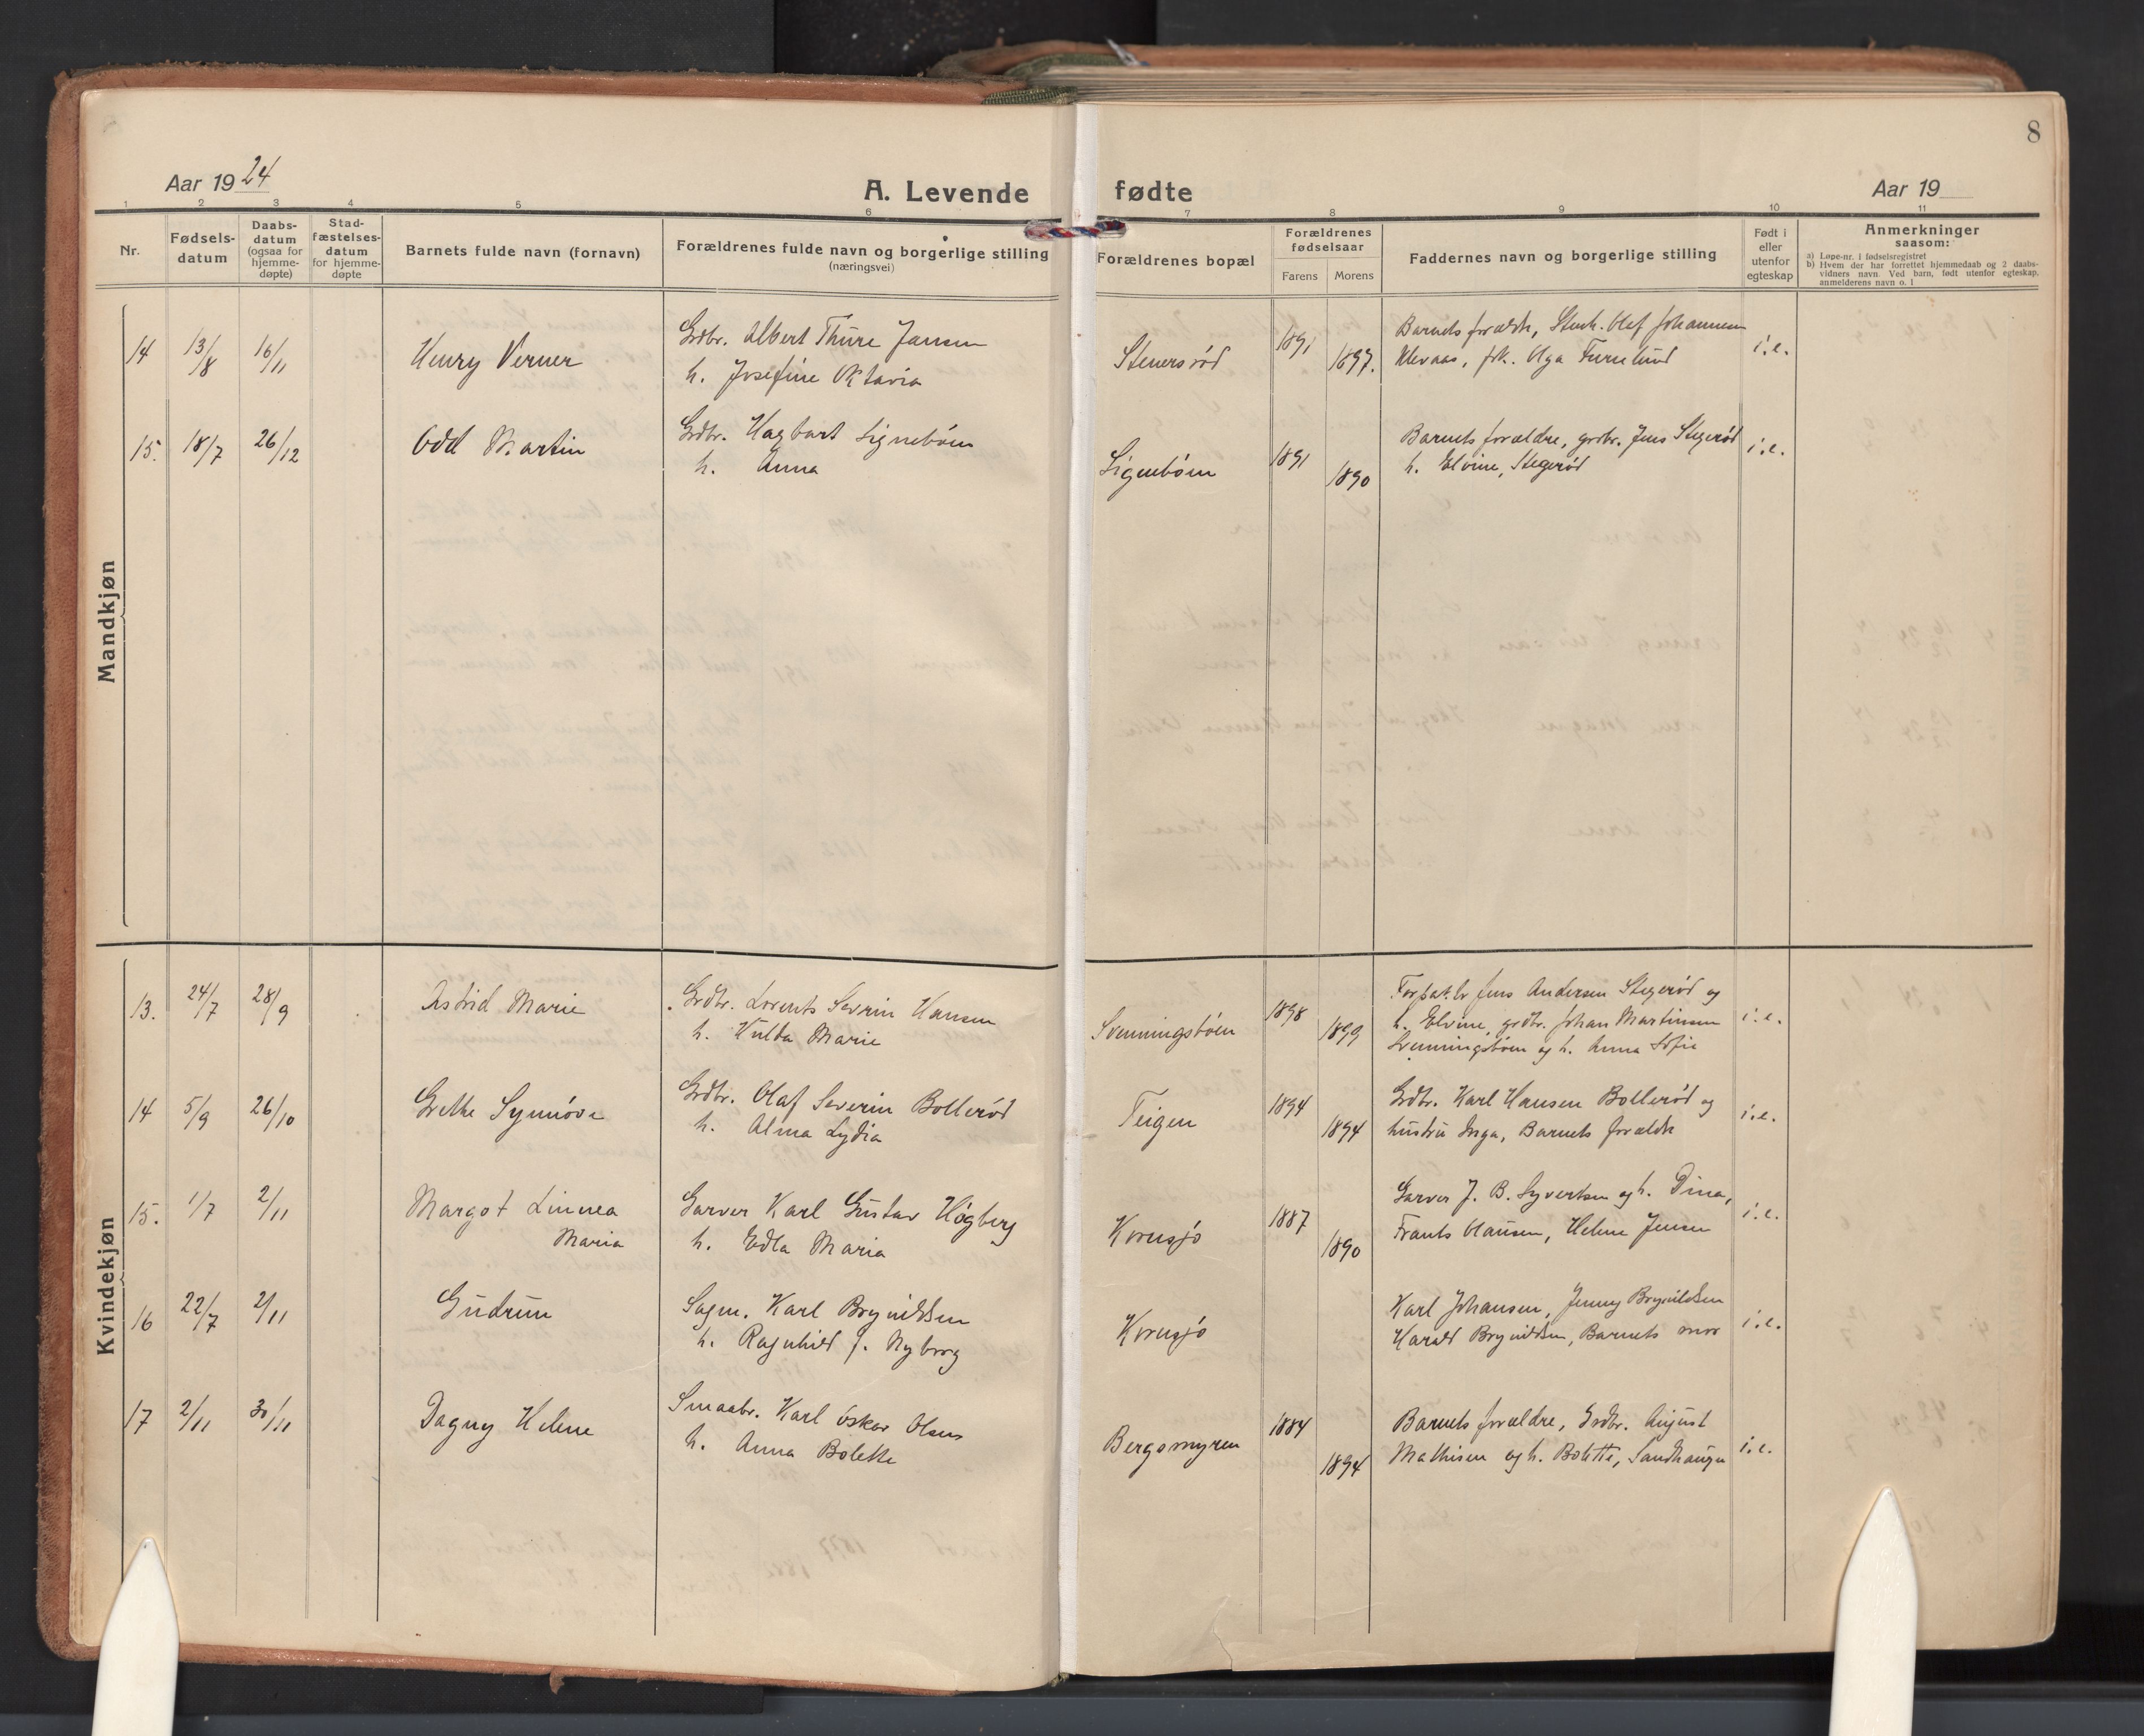 8
Aar 1924
A. Levende fødte
Aar 19
1 2 3 4 5 6 7 8 9 10 11
Nr.
Fødsels-
datum
Daabs-
datum
(ogsaa for
hjemme-
døpte)
Stad-
fæstelses-
datum
for hjemme-
døpte
Barnets fulde navn (fornavn)
Forældrenes fulde navn og borgerlige stilling
(næringsvei)
Forældrenes bopæl
Forældrenes
fødselsaar
Farens Morens
Faddernes navn og borgerlige stilling
Født i
eller
utenfor
egteskap
Anmerkninger
saasom:
a) Løpe-nr. i fødselsregistret
b) Hvem der har forrettet hjemmedaab og 2 daabs-
vidners navn. Ved barn, født utenfor egteskap,
anmelderens navn o. l
Mandkjøn
14 13/8 16/11 Henry Verner
Grdbr. Albert Thure Jansen
h. Josefine Oktavia
Stenersrød 1891 1897.
Barnets foræld., Stenh. Olef Johannesen
Klevaas, frk. Olga Furulund
i.e.
15. 18/7 26/12 Odd Martin
Grdbr. Hagbart Lignebøen
h. Anna
Lignebøen 1891 1890
Barnets forældre, grdbr. Jens Stegerød
h. Elvine, Stegerød
i.e.
Kvindekjøn
13. 24/7 28/9 Astrid Marie
Grdbr. Lorents Severin Hansen
h. Hulda Marie
Svenningsbøen 1898 1899
Forpakt. Jens Andersen Stegerød og
h. Elvine, grdbr. Johan Martinsen
Svenningsbøen og h. Anna Sofie
i.e.
14 5/9 26/10 Grethe Synnøve
Grdbr. Olaf Severin Bollerød
h. Alma Lydia
Teigen 1894 1894
Grdbr. Karl Hansen Bollerød og
hustru Inga, Barnets foræld.
i.e.
15. 1/7 2/11 Margot Linnea
Maria
Garver Karl Gustav Høgberg
h. Edla Maria
Kornsjø 1887 1890
Garver J. B. Syvertsen og h. Dina,
Frants Clausen, Helene Jensen
i.e.
16 22/7 2/11 Gudrun
Sagm. Karl Brynildsen
h. Ragnhild f. Nyborg
Kornsjø
Karl Johansen, Jenny Brynildsen
Harald Brynildsen, Barnets mor
i.e.
17 2/11 30/11 Dagny Helene
Smaabr. Karl Oskar Olsen
h. Anna Bolette
Bergsmyren 1884 1894
Barnets forældre, Grdbr. August
Mathisen og h. Bolette, Sandhaugen
i.e.